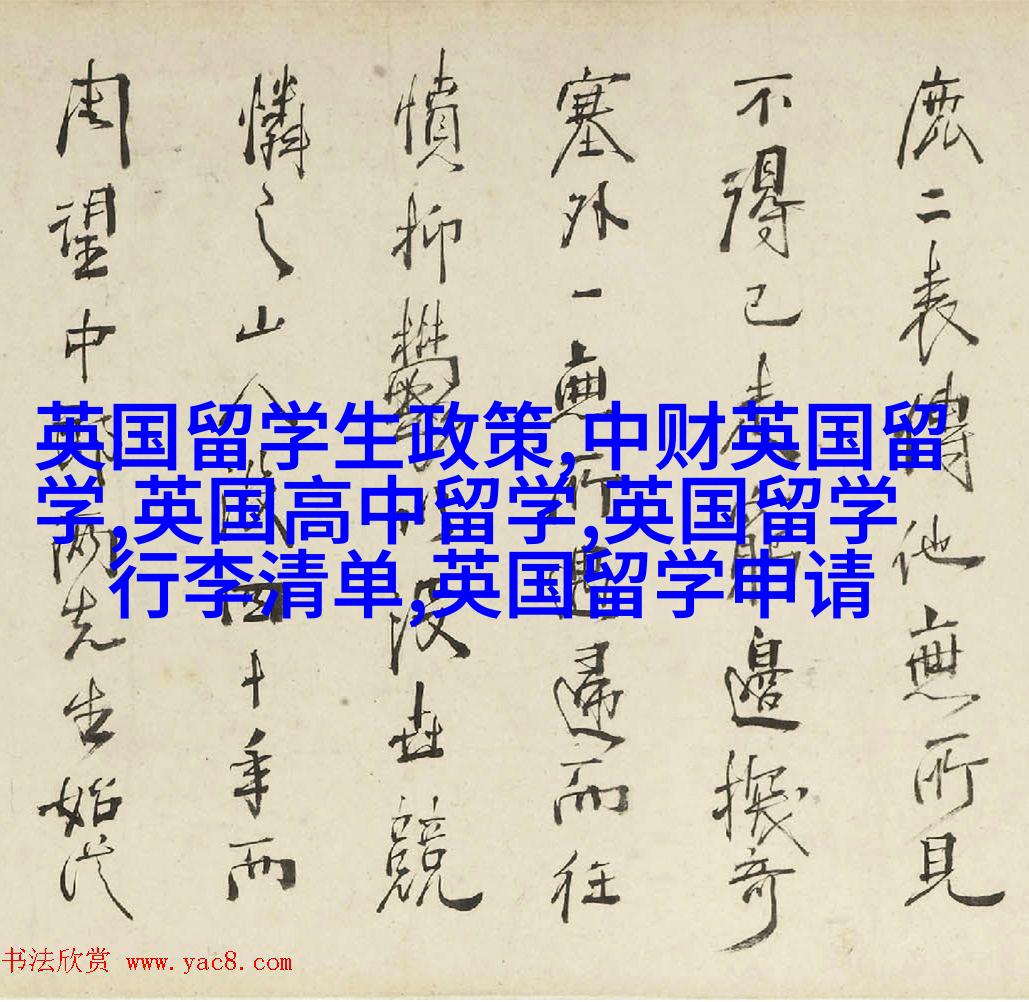 二表傳他無所見
不得已走邊奇
塞外一無所遇歸而往
憤抑鬱以沒世競
憐之山四十年而
周望中郎兩先生始從
英国留学生政策,中财英国留
学,英国高中留学,英国留学
行李清单,英国留学申请
书法欣赏 www.yac8.com